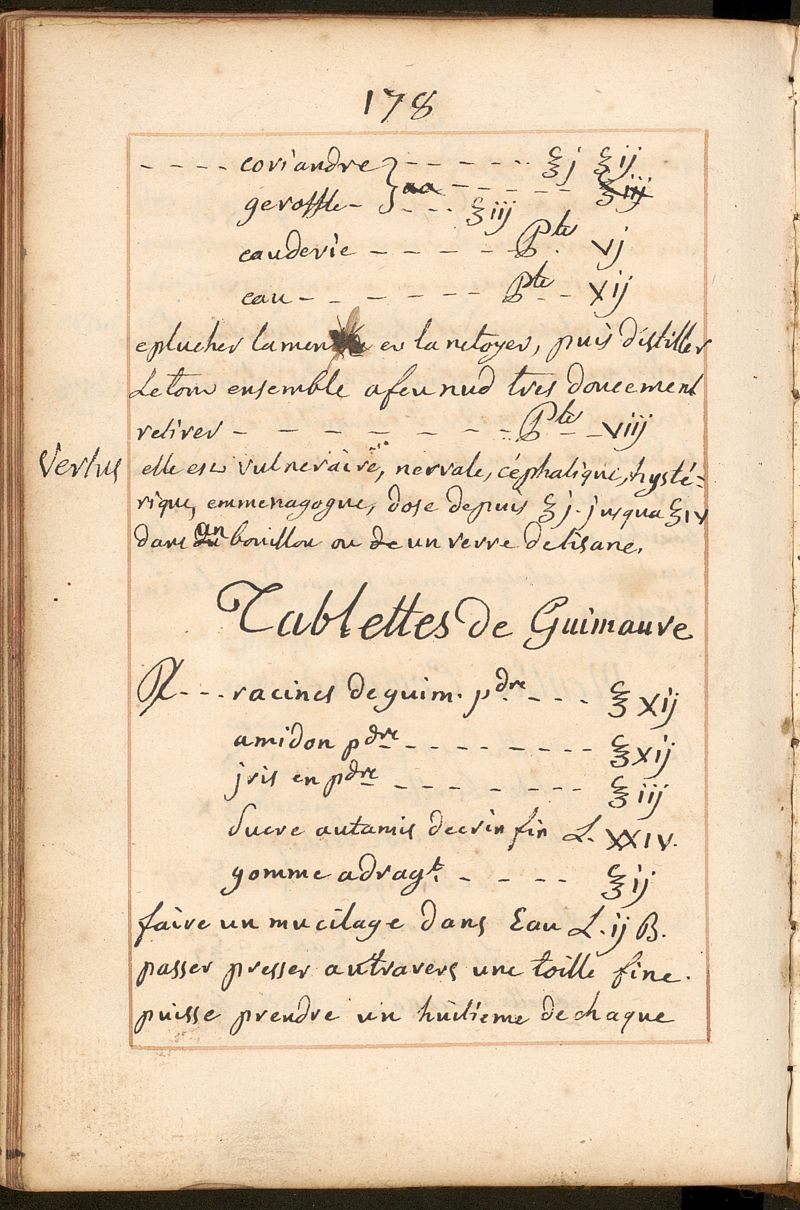 178
---- coriandre } ------ ℥j ℥ij
geroffle - } aa ------ ℥iij
---- ℥iij
eauderie ----- Pte vj
eau ------- Pte xij
eplucher lamen et la netoyer, puis distiller
Letout ensemble afeu nud tres doucement
retirer -------- Pte viij
Vertus
elle est vulneraire, nervale, céphalique, hysté=
rique, emmenagogue, dose depuis ℥j. jusqua ℥iv
dans un bouillon ou de un verre detisane.
Tablettes de Guimauve
℞ --- racines deguim. pdre --- ℥xij
amidon pdre -------- ℥xij
jris en pdre ------- ℥iij
Sucre autamis decrin fin L. XXIV.
gomme adragt. ---- ℥ij
faire un mucilage dans Eau L. ij ß.
passer presser autravers une toille fine.
puisse prendre un huitieme dechaque